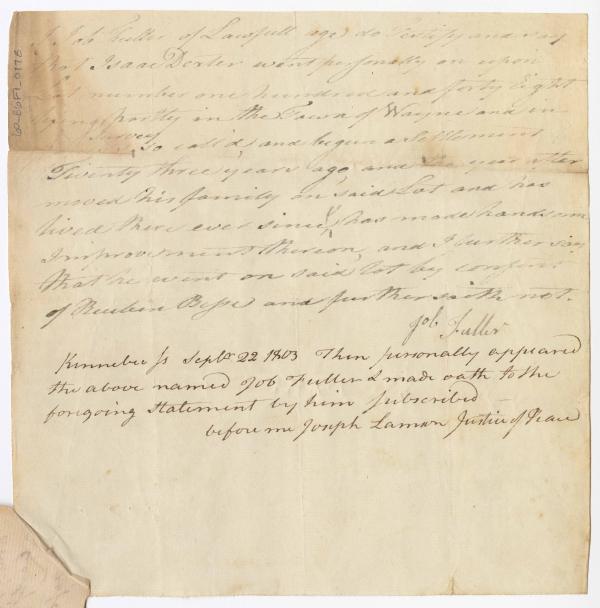 I Job Fuller of Lawfull age do Testify and say
that Isaac Dexter went personally on upon
Lot number one hundred and forty Eight
lying partly in the Town of Wayne and in
Survey
so call'd, and begun a Settlement
Twenty three years ago, and the year after
moved his family on said Lot and has
lived there ever since, & has made handsom
Improvements thereon, and I further say
that he went on said lot by consent
of Reuben Besse and further saith not.
Job Fuller
Kennebec Ss Sepbr 22 1803 Then personally appeared
the above named Job Fuller & made oath to the
foregoing statement by him subscribed
before me Joseph Lamson Justice of Peace